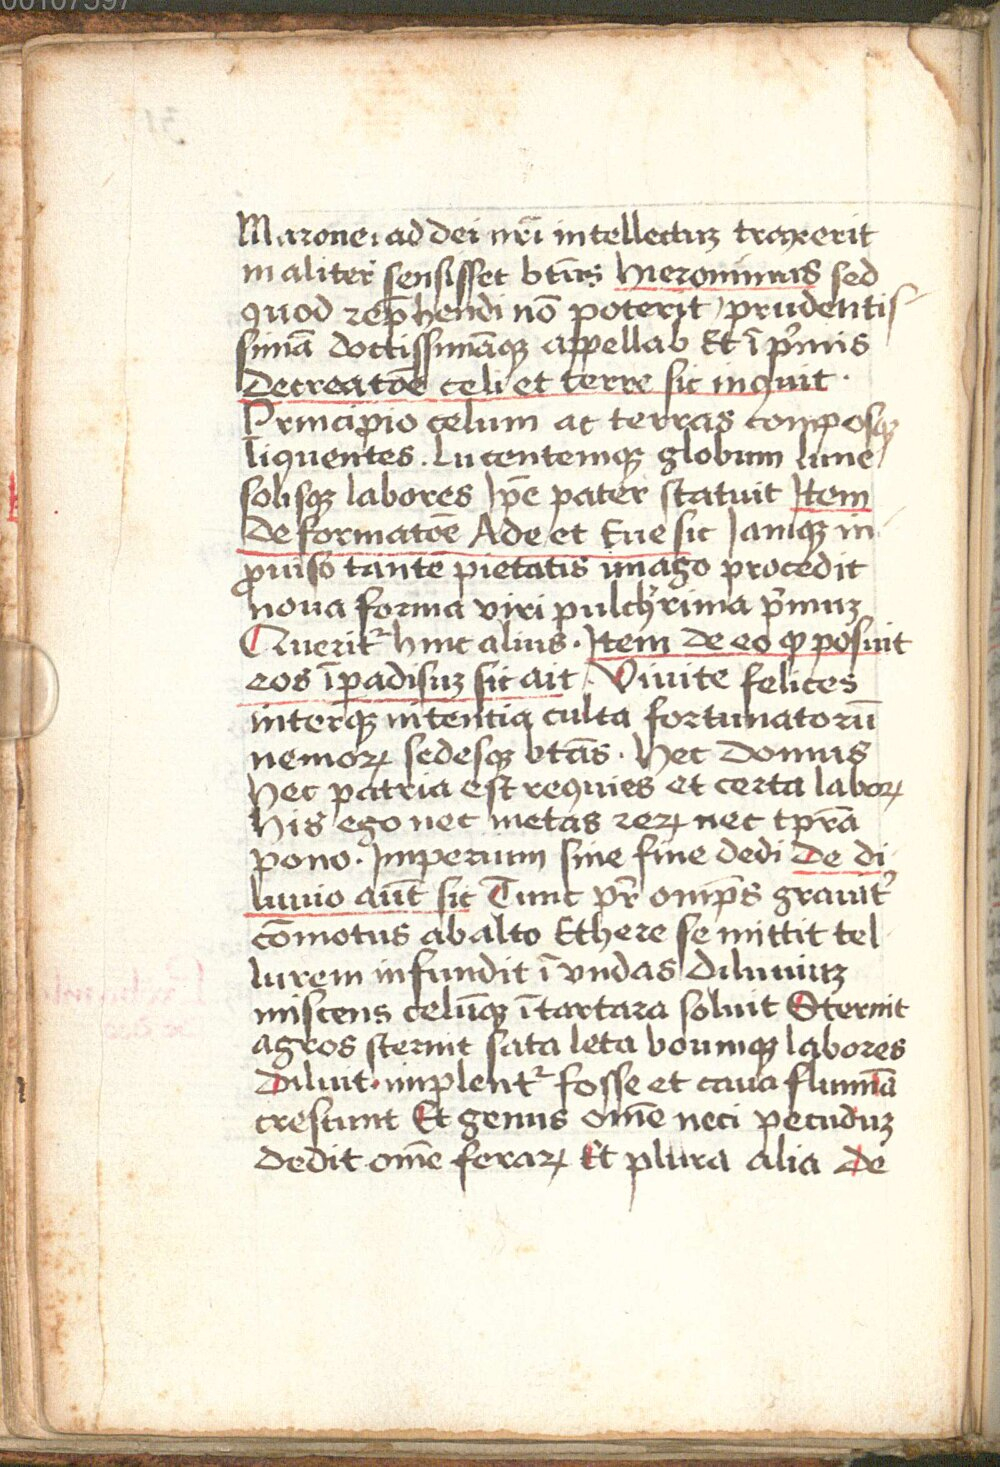 00107397
Marone: ad dei nr̄i intellectuȝ traxerit
ni aliter sensisset bt̄us Hieronimus sed
quod rep̄hendi nō poterit prudentis-
simā doctissimāqȝ appellab Et ī p̄mis
De creatōe celi et terre sic inquit .
Principio celum ac terras composqȝ
liquentes . Lucentemqȝ globum lune
solisqȝ labores Ip̄e pater statuit Item
De formatōe Ade et Eue sic Iamqȝ in-
ꝓuiso tante pietatis imago procedit
noua forma viri pulch̓rima p̄muȝ
Querit᷑ hinc alius . Item de eo ꝙ posuit
eos ī padisuȝ sic ait . Viuite felices
interqȝ nitentia culta fortunatorū
nemoꝝ sedesqȝ bt̄as . Hec domus
hec patria est requies et certa laboꝝ
his ego nec metas reꝝ nec tp̄rā
pono . Imperium sine fine dedi De di-
luuio aūt sic Tunc pr̄ omp̄s grauit̓
cōmotus ab alto Ethere se mittit tel-
lurem infundit ī vndas diluuiuȝ
miscens celūqȝ ī tartara soluit Sternit
agros sternit sata leta boumqȝ labores
Diluit . implent᷑ fosse et caua flumīa
crescunt Et genus om̄e neci pecuduȝ
dedit om̄e feraꝝ Et plura alia De